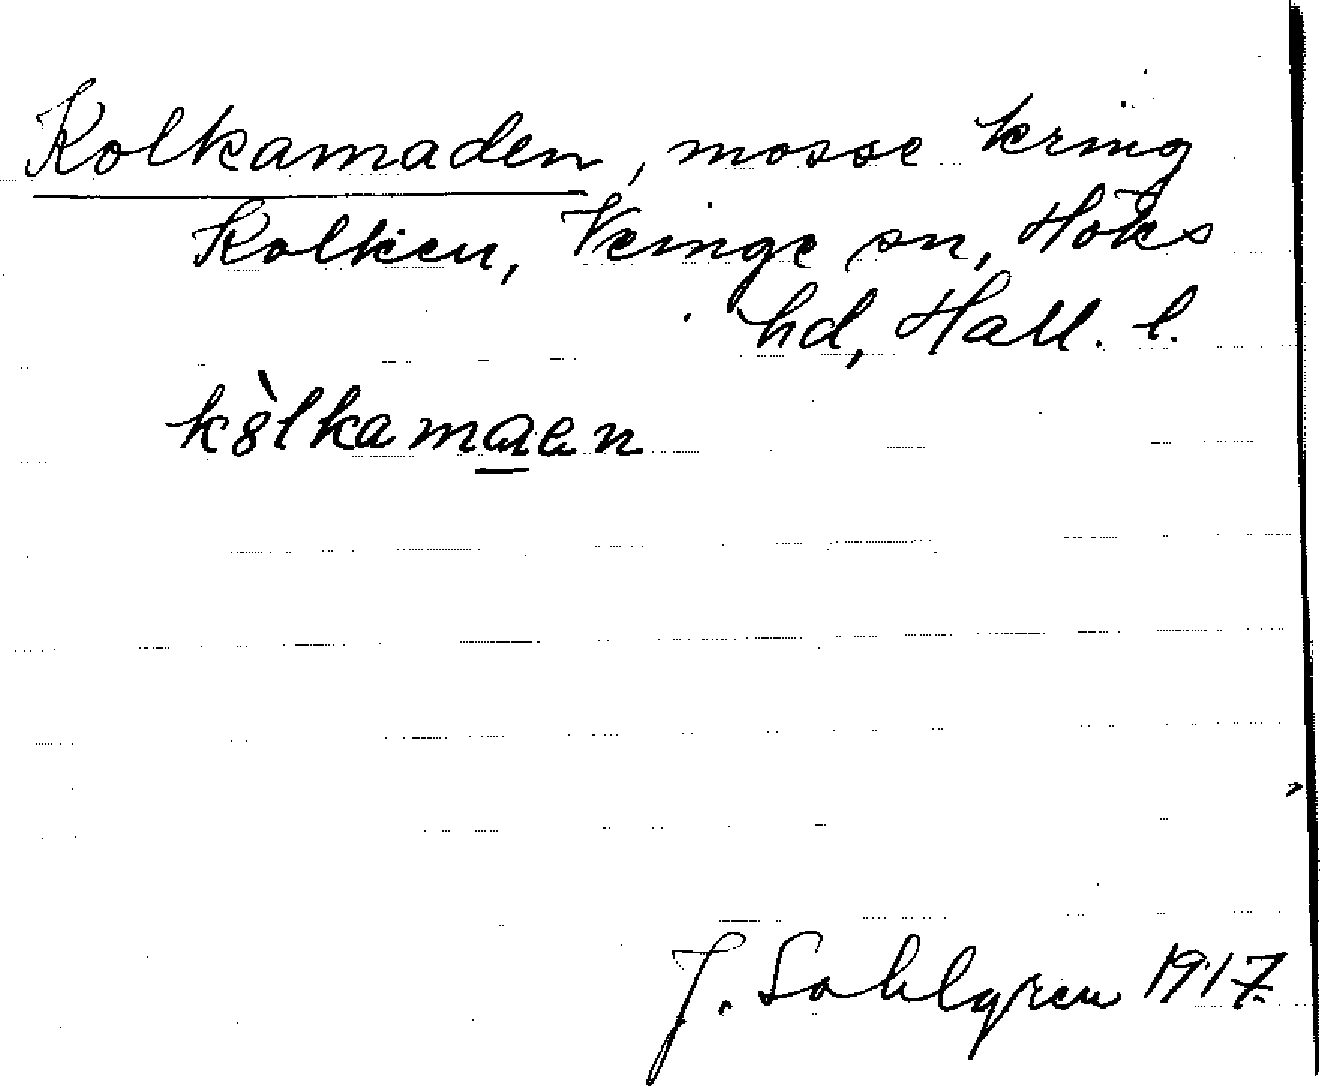 Kolkamaden, mosse kring
Kolken, Veinge sn, Höks
hd, Hall. l.
kòlkamaen
J. Sahlgren 1917